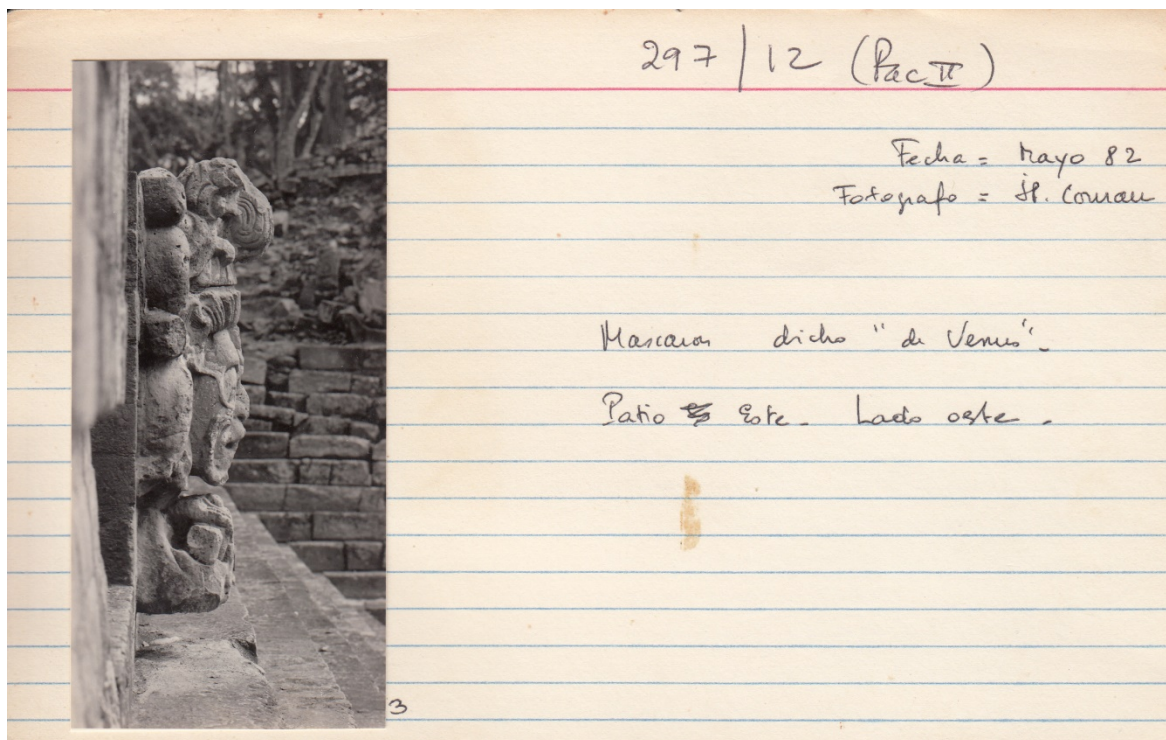 297 | 12 (Pac II)
Fecha = Mayo 82
Fotografo = H. Coman
Mascaron dicho "de Venus".
Patio Este. Lado oeste.
3